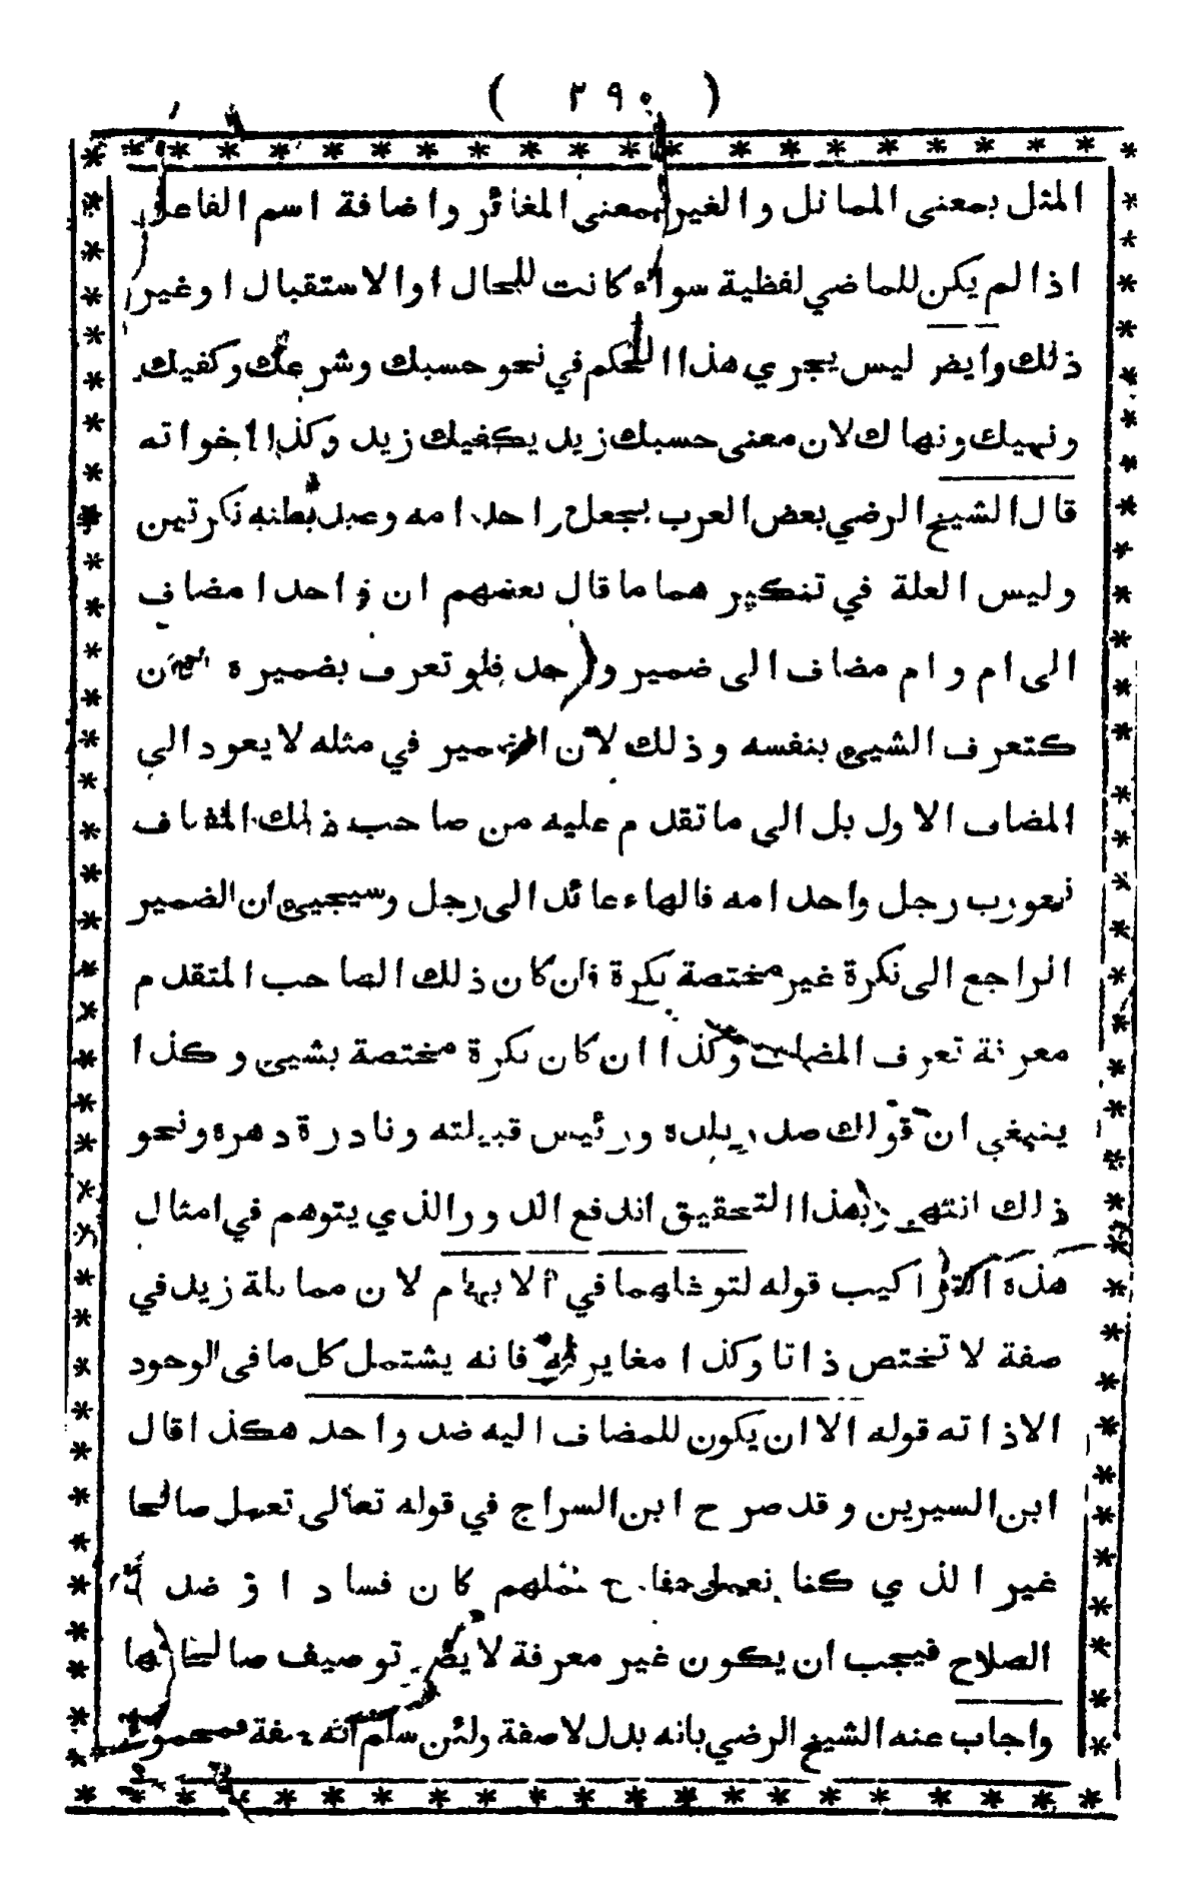 ( ٢٩٠ )
المثل بمعنى المماثل والغير بمعنى المغائر واضافة اسم الفاعل
اذا لم يكن للماضي لفظية سواء كانت للحال او الاستقبال او غير
ذلك وايضر ليس يجري هذا الحكم في نحو حسبك وشرعك وكفيك
ونهيك ونهاك لان معنى حسبك زيد يكفيك زيد وكذا اخواته
قال الشيخ الرضي بعض العرب يجعل واحد امه وعبد بطنه نكرتين
وليس العلة في تنكيرهما ما قال بعضهم ان واحدا مضاف
الى ام وام مضاف الى ضمير واحد فلو تعرف بضميره لكان
كتعرف الشيئ بنفسه وذلك لان الضمير في مثله لا يعود الى
المضاف الاول بل الى ما تقدم عليه من صاحب ذلك المضاف
نحو رب رجل واحد امه فالهاء عائد الى رجل وسيجيئ ان الضمير
الراجع الى نكرة غير مختصة نكرة فان كان ذلك الصاحب المتقدم
معرفة تعرف المضاف وكذا ان كان نكرة مختصة بشيئ وكذا
ينبغي ان قولك صدر بلده ورئيس قبيلته ونادرة دهره ونحو
ذلك انتهى وبهذا التحقيق اندفع الدور الذي يتوهم في امثال
هذه التراكيب قوله لتوغلهما في الابهام لان مماثلة زيد في
صفة لا تختص ذاتا وكذا مغايرته فانه يشتمل كل ما في الوجود
الا ذاته قوله الا ان يكون للمضاف اليه ضد واحد هكذا قال
ابن السيرين وقد صرح ابن السراج في قوله تعالى نعمل صالحا
غير الذي كنا نعمل عملهم كان فسادا وضد
الصلاح فيجب ان يكون غير معرفة لا يضر توصيف صالحا بها
واجاب عنه الشيخ الرضي بانه بدل لا صفة ولئن سلم انه صفة